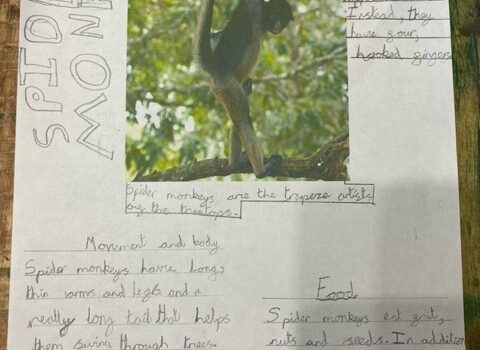 SPID
MON
Instead, they
have four,
hooked gingers
Spider monkeys are the trapeze artists
og the treetops.
Movement and body
Spider monkeys have long,
thin arms and legs and a
really long tail that helps
them swing through trees.
Food
Spider monkeys eat
nuts and seeds. In addition